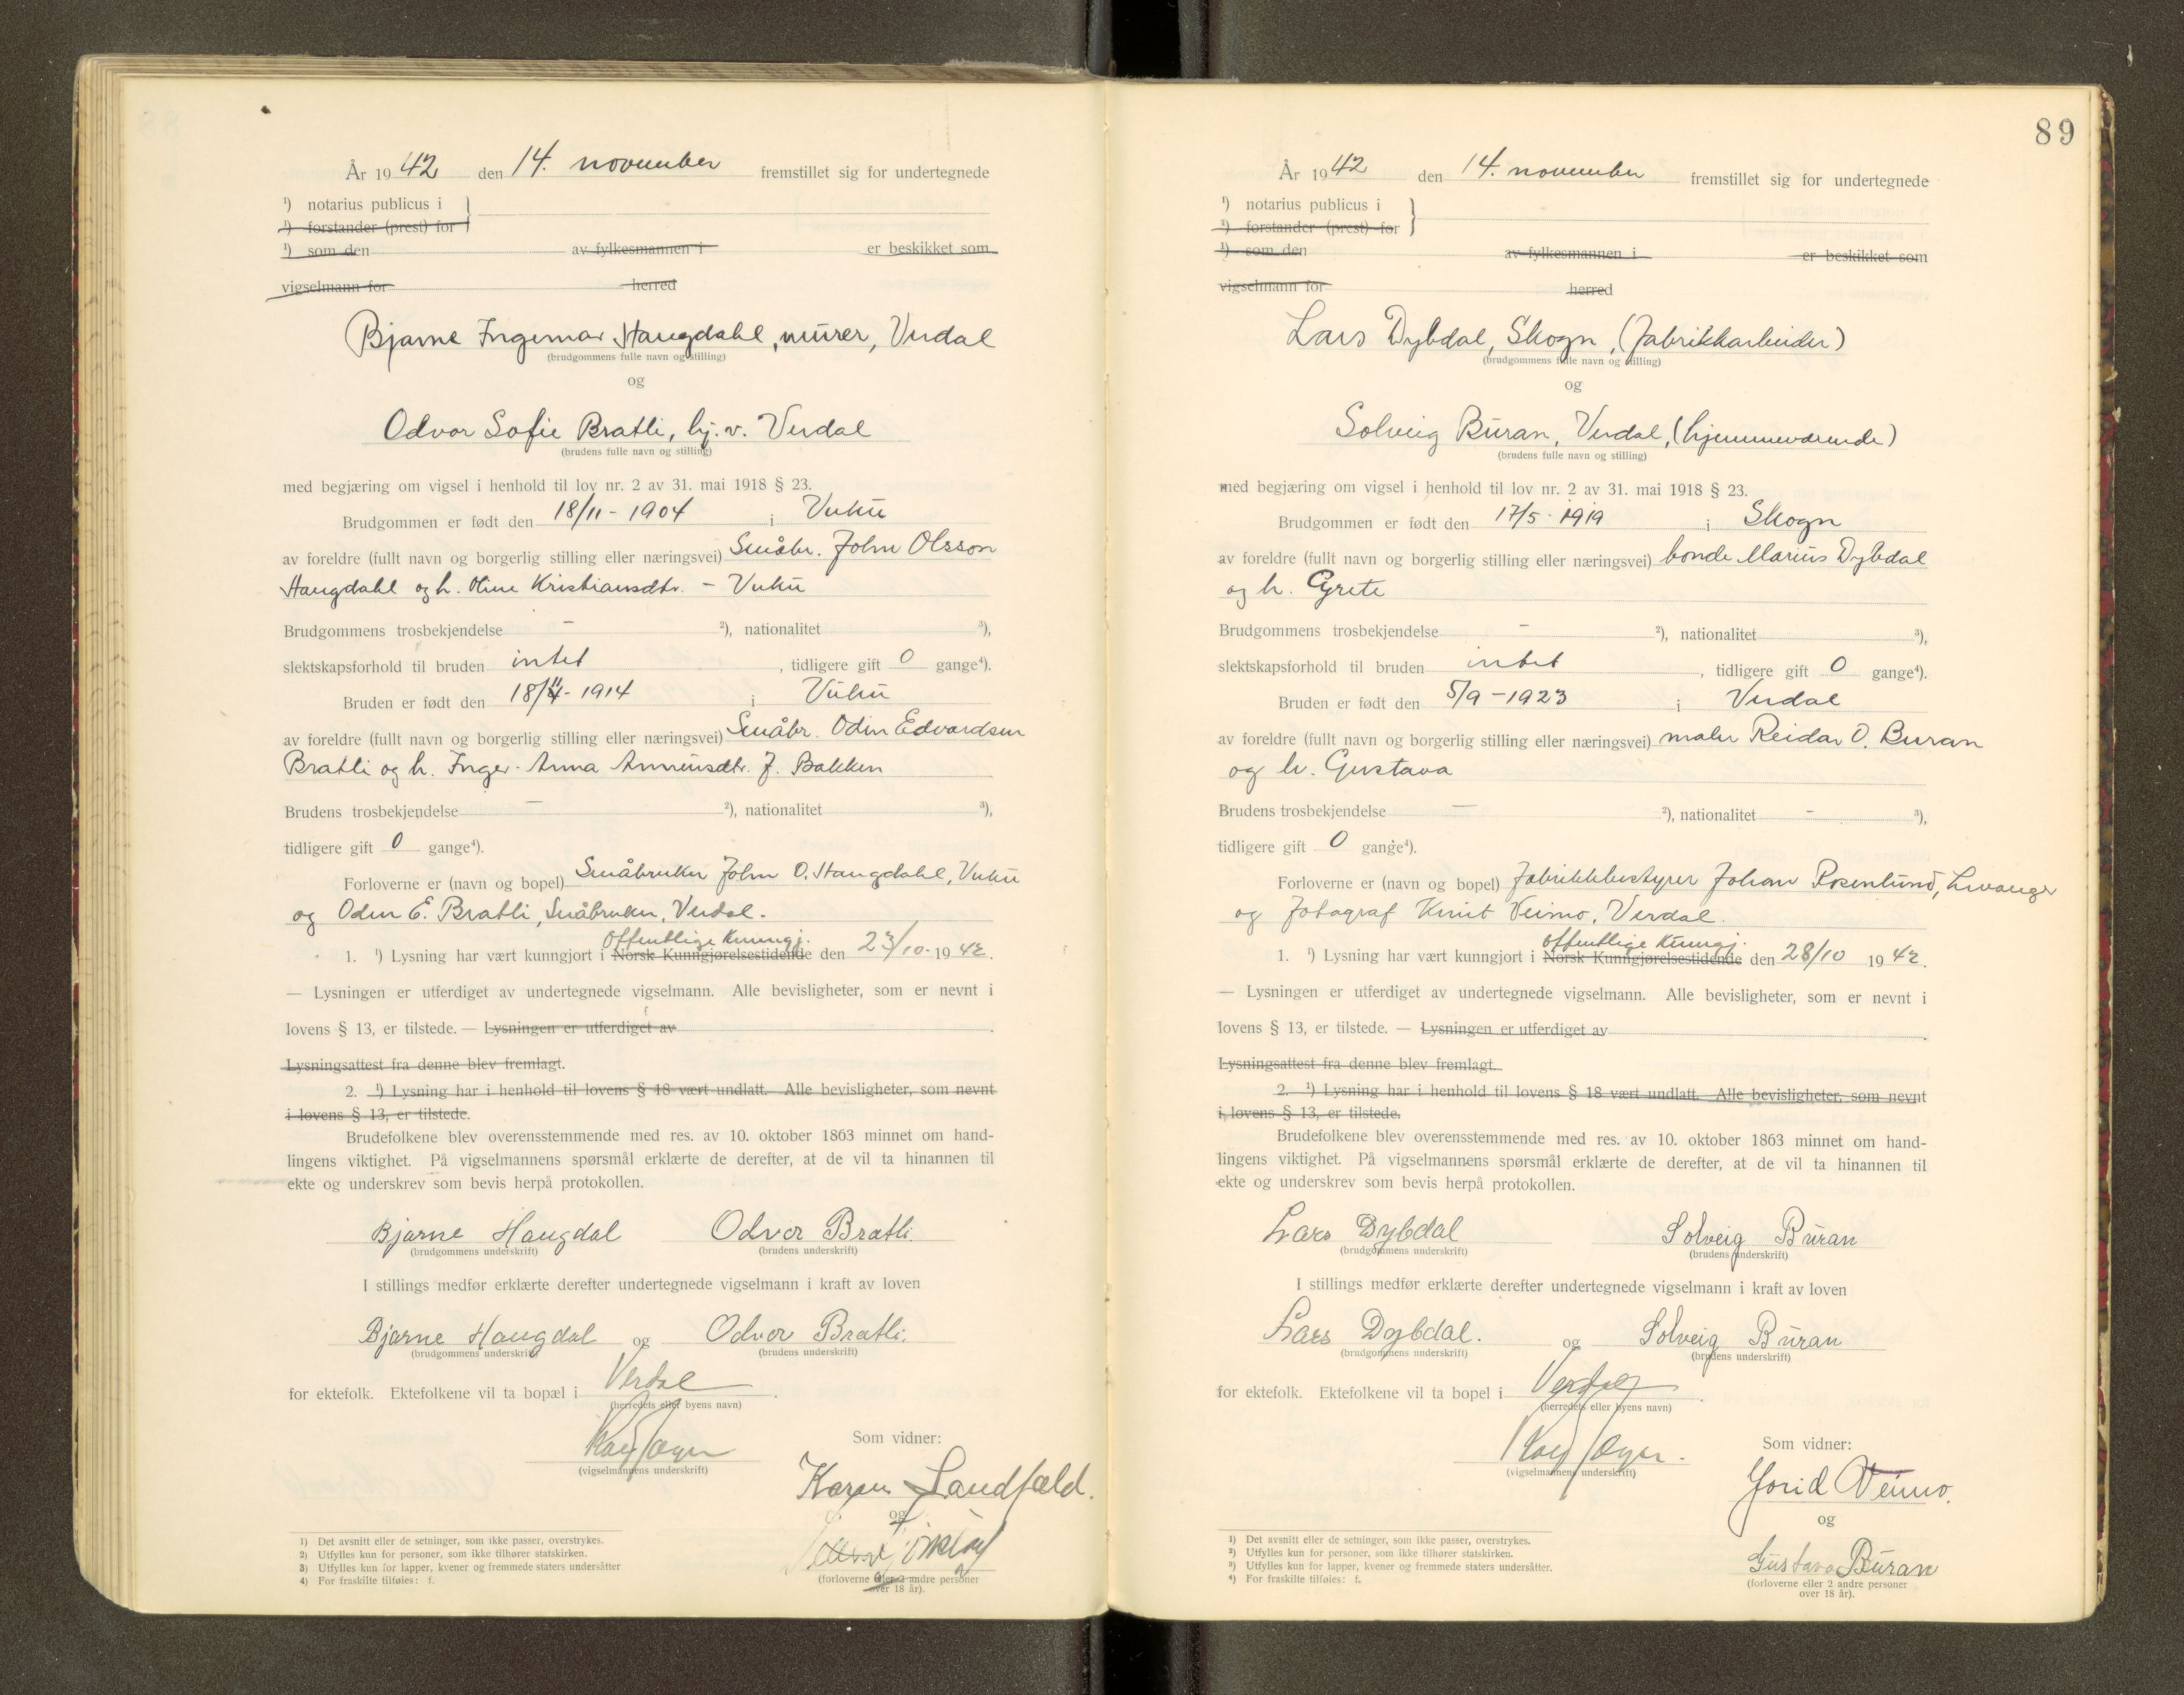 År 1942 den 14. november fremstillet sig for undertegnede
¹) notarius publicus i
¹) forstander (prest) for
¹) som den av fylkesmannen i er beskikket som
vigselmann for herred
Bjarne Ingemar Haugdahl, murer, Verdal
(brudgommens fulle navn og stilling)
og
Odvor Sofie Bratli, hj.v. Verdal
(brudens fulle navn og stilling)
med begjæring om vigsel i henhold til lov nr. 2 av 31. mai 1918 § 23.
Brudgommen er født den 18/11 - 1904 i Vuku
av foreldre (fullt navn og borgerlig stilling eller næringsvei) Småbr. John Olsson
Haugdahl og h. Oline Kristiansdtr. - Vuku
Brudgommens trosbekjendelse - ²), nationalitet ³),
slektskapsforhold til bruden intet, tidligere gift 0 gange⁴).
Bruden er født den 18/11 - 1914 i Vuku
av foreldre (fullt navn og borgerlig stilling eller næringsvei) Småbr. Odin Edvardsen
Bratli og h. Inger Anna Anneusdtr. f. Bakken
Brudens trosbekjendelse - ²), nationalitet ³),
tidligere gift 0 gange⁴).
Forloverne er (navn og bopel) Småbruker John O. Haugdahl, Vuku
og Odin E. Bratli, Småbruker, Verdal.
offentlige kunngj.
1. ¹) Lysning har vært kunngjort i Norsk Kunngjørelsestidende den 23/10 - 1942.
— Lysningen er utferdiget av undertegnede vigselmann. Alle bevisligheter, som er nevnt i
lovens § 13, er tilstede. — Lysningen er utferdiget av .
Lysningsattest fra denne blev fremlagt.
2. ¹) Lysning har i henhold til lovens § 18 vært undlatt. Alle bevisligheter, som nevnt
i lovens § 13, er tilstede.
Brudefolkene blev overensstemmende med res. av 10. oktober 1863 minnet om hand-
lingens viktighet. På vigselmannens spørsmål erklærte de derefter, at de vil ta hinannen til
ekte og underskrev som bevis herpå protokollen.
Bjarne Haugdal Odvor Bratli.
(brudgommens underskrift) (brudens underskrift)
I stillings medfør erklærte derefter undertegnede vigselmann i kraft av loven
Bjarne Haugdal og Odvor Bratli.
(brudgommens underskrift) (brudens underskrift)
for ektefolk. Ektefolkene vil ta bopæl i Verdal .
(herredets eller byens navn)
Som vidner:
(vigselmannens underskrift)
Karen Landfald.
og
(forloverne eller 2 andre personer
over 18 år).
1) Det avsnitt eller de setninger, som ikke passer, overstrykes.
2) Utfylles kun for personer, som ikke tilhører statskirken.
3) Utfylles kun for lapper, kvener og fremmede staters undersåtter
4) For fraskilte tilføies: f.
89
År 1942 den 14. november fremstillet sig for undertegnede
¹) notarius publicus i
¹) forstander (prest) for
¹) som den av fylkesmannen i er beskikket som
vigselmann for herred
Lars Dybdal, Skogn, (fabrikkarbeider)
(brudgommens fulle navn og stilling)
og
Solveig Buran, Verdal, (hjemmeværende)
(brudens fulle navn og stilling)
med begjæring om vigsel i henhold til lov nr. 2 av 31. mai 1918 § 23.
Brudgommen er født den 17/5 - 1919 i Skogn
av foreldre (fullt navn og borgerlig stilling eller næringsvei) bonde Marius Dybdal
og h. Grete
Brudgommens trosbekjendelse - ²), nationalitet ³),
slektskapsforhold til bruden intet, tidligere gift 0 gange⁴).
Bruden er født den 5/9 - 1923 i Verdal
av foreldre (fullt navn og borgerlig stilling eller næringsvei) maler Reidar O. Buran
og h. Gustava
Brudens trosbekjendelse - ²), nationalitet - ³),
tidligere gift 0 gange⁴).
Forloverne er (navn og bopel) Fabrikkbestyrer Johan Rosenlund, Levanger
og Fotograf Knut Veimo, Verdal.
offentlige kunngj.
1. ¹) Lysning har vært kunngjort i Norsk Kunngjørelsestidende den 28/10 1942.
— Lysningen er utferdiget av undertegnede vigselmann. Alle bevisligheter, som er nevnt i
lovens § 13, er tilstede. — Lysningen er utferdiget av .
Lysningsattest fra denne blev fremlagt.
2. ¹) Lysning har i henhold til lovens § 18 vært undlatt. Alle bevisligheter, som nevnt
i lovens § 13, er tilstede.
Brudefolkene blev overensstemmende med res. av 10. oktober 1863 minnet om hand-
lingens viktighet. På vigselmannens spørsmål erklærte de derefter, at de vil ta hinannen til
ekte og underskrev som bevis herpå protokollen.
Lars Dybdal Solveig Buran
(brudgommens underskrift) (brudens underskrift)
I stillings medfør erklærte derefter undertegnede vigselmann i kraft av loven
Lars Dybdal. og Solveig Buran
(brudgommens underskrift) (brudens underskrift)
for ektefolk. Ektefolkene vil ta bopel i Verdal .
(herredets eller byens navn)
Som vidner:
(vigselmannens underskrift)
Jorid Veimo.
og
Gustava Buran
(forloverne eller 2 andre personer
over 18 år).
1) Det avsnitt eller de setninger, som ikke passer, overstrykes.
2) Utfylles kun for personer, som ikke tilhører statskirken.
3) Utfylles kun for lapper, kvener og fremmede staters undersåtter.
4) For fraskilte tilføies: f.